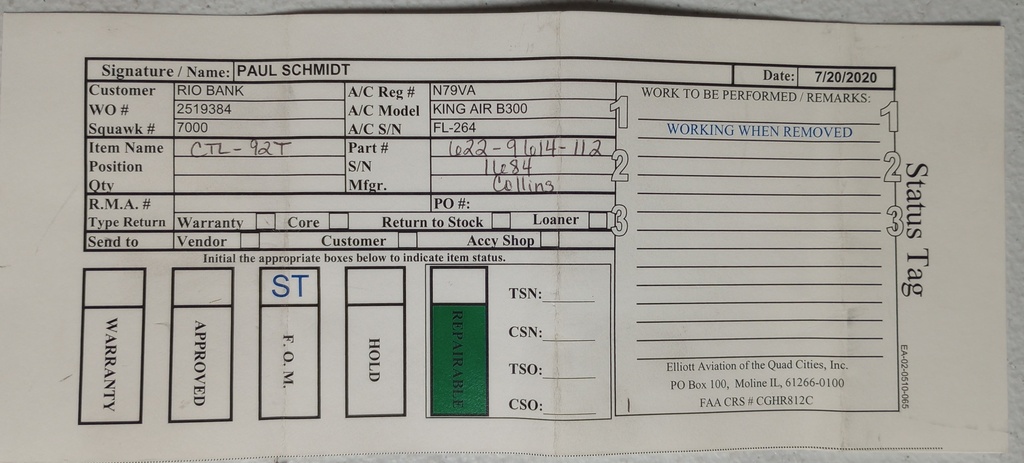 Signature / Name: PAUL SCHMIDT
Date: 7/20/2020
Customer RIO BANK A/C Reg # N79VA
WO # 2519384 A/C Model KING AIR B300
Squawk # 7000 A/C S/N FL-264
Item Name CTL-92T Part # 622-9614-112
Position S/N 1684
Qty Mfgr. Collins
R.M.A. # PO #:
Type Return Warranty Core Return to Stock Loaner
Send to Vendor Customer Accy Shop
Initial the appropriate boxes below to indicate item status.
ST
WARRANTY
APPROVED
F. O. M.
HOLD
REPAIRABLE
TSN:
CSN:
TSO:
CSO:
1
2
3
WORK TO BE PERFORMED / REMARKS:
WORKING WHEN REMOVED
Elliott Aviation of the Quad Cities, Inc.
PO Box 100, Moline IL, 61266-0100
FAA CRS # CGHR812C
1
2
3
Status Tag
EA-02-0510-065